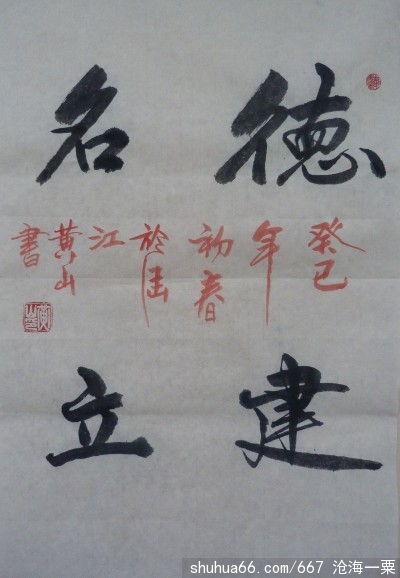 德建
名立
癸巳
年
初春
於
江
黄山
書
shuhua66.com/667 沧海一粟